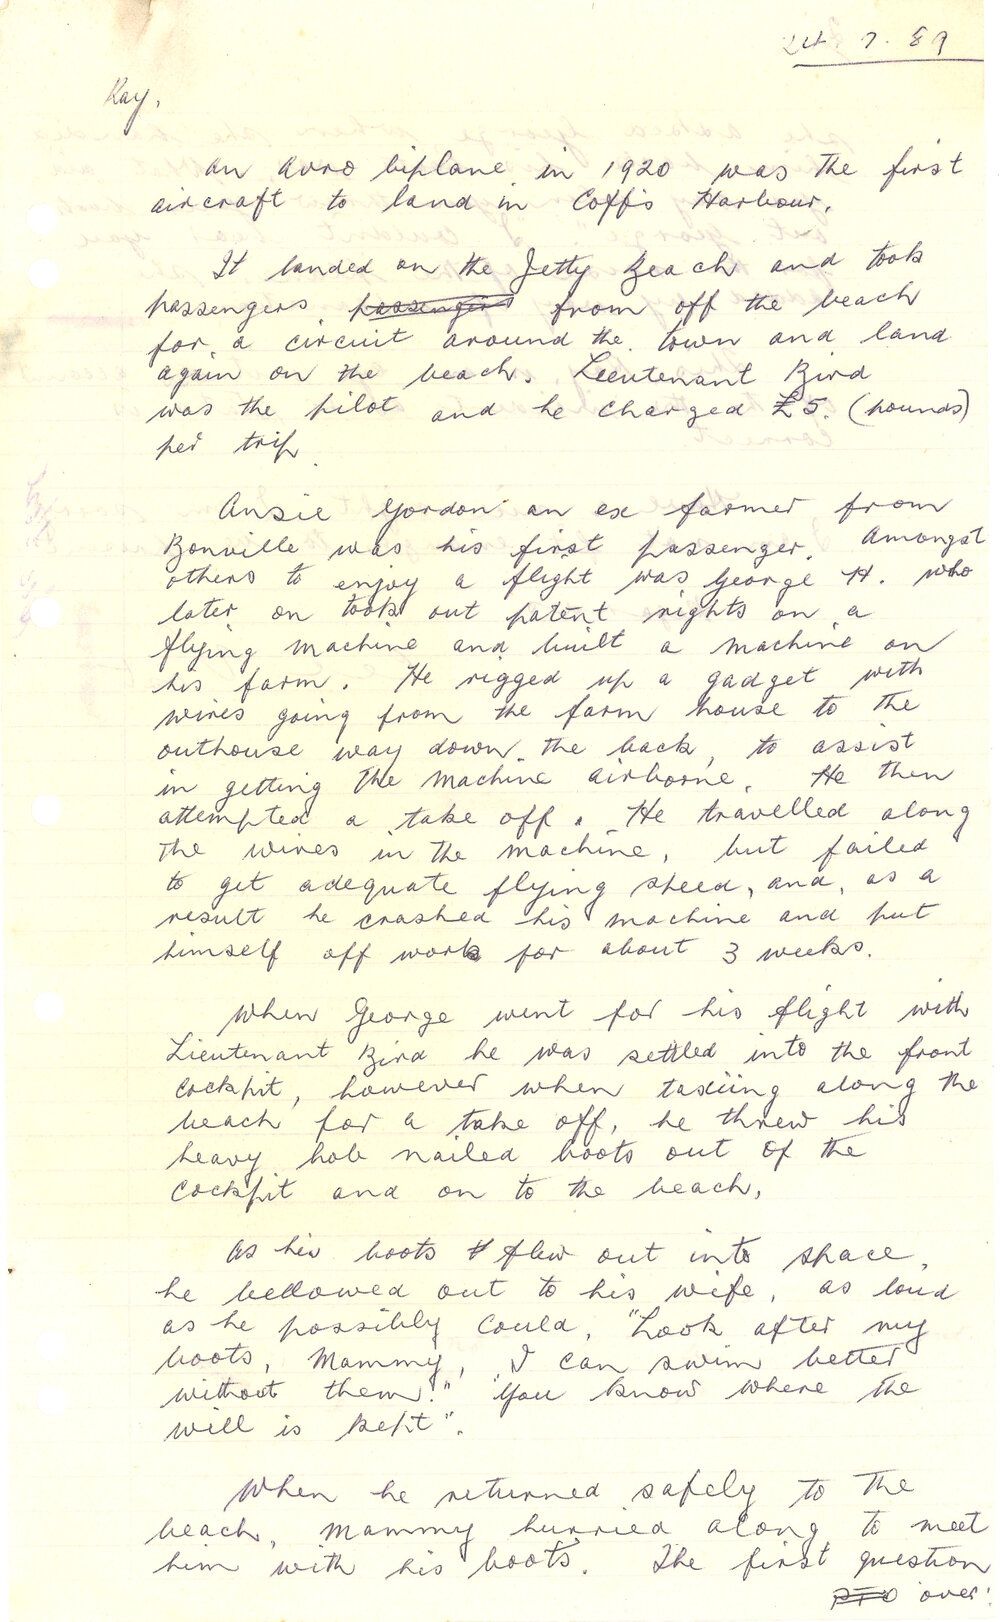 24.7.89
Ray,
An Avro biplane in 1920 was the first
aircraft to land in Coffs Harbour.
It landed on the Jetty Beach and took
passengers passengers from off the beach
for a circuit around the town and land
again on the beach. Lieutenant Bird
was the pilot and he charged £5. (pounds)
per trip.
Ansie Gordon an ex farmer from
Bonville was his first passenger. Amongst
others to enjoy a flight was George H. who
later on took out patent rights on a
flying machine and built a machine on
his farm. He rigged up a gadget with
wires going from the farm house to the
outhouse way down the back, to assist
in getting the machine airborne. He then
attempted a take off. He travelled along
the wires in the machine, but failed
to get adequate flying speed, and, as a
result he crashed his machine and put
himself off work for about 3 weeks.
When George went for his flight with
Lieutenant Bird he was settled into the front
cockpit, however when taxiing along the
beach for a take off, he threw his
heavy hob nailed boots out of the
cockpit and on to the beach.
As his boots flew out into space,
he bellowed out to his wife, as loud
as he possibly could, "Look after my
boots, Mammy, I can swim better
without them!" "You know where the
will is kept".
When he returned safely to the
beach, Mammy hurried along to meet
him with his boots. The first question
PTO over!